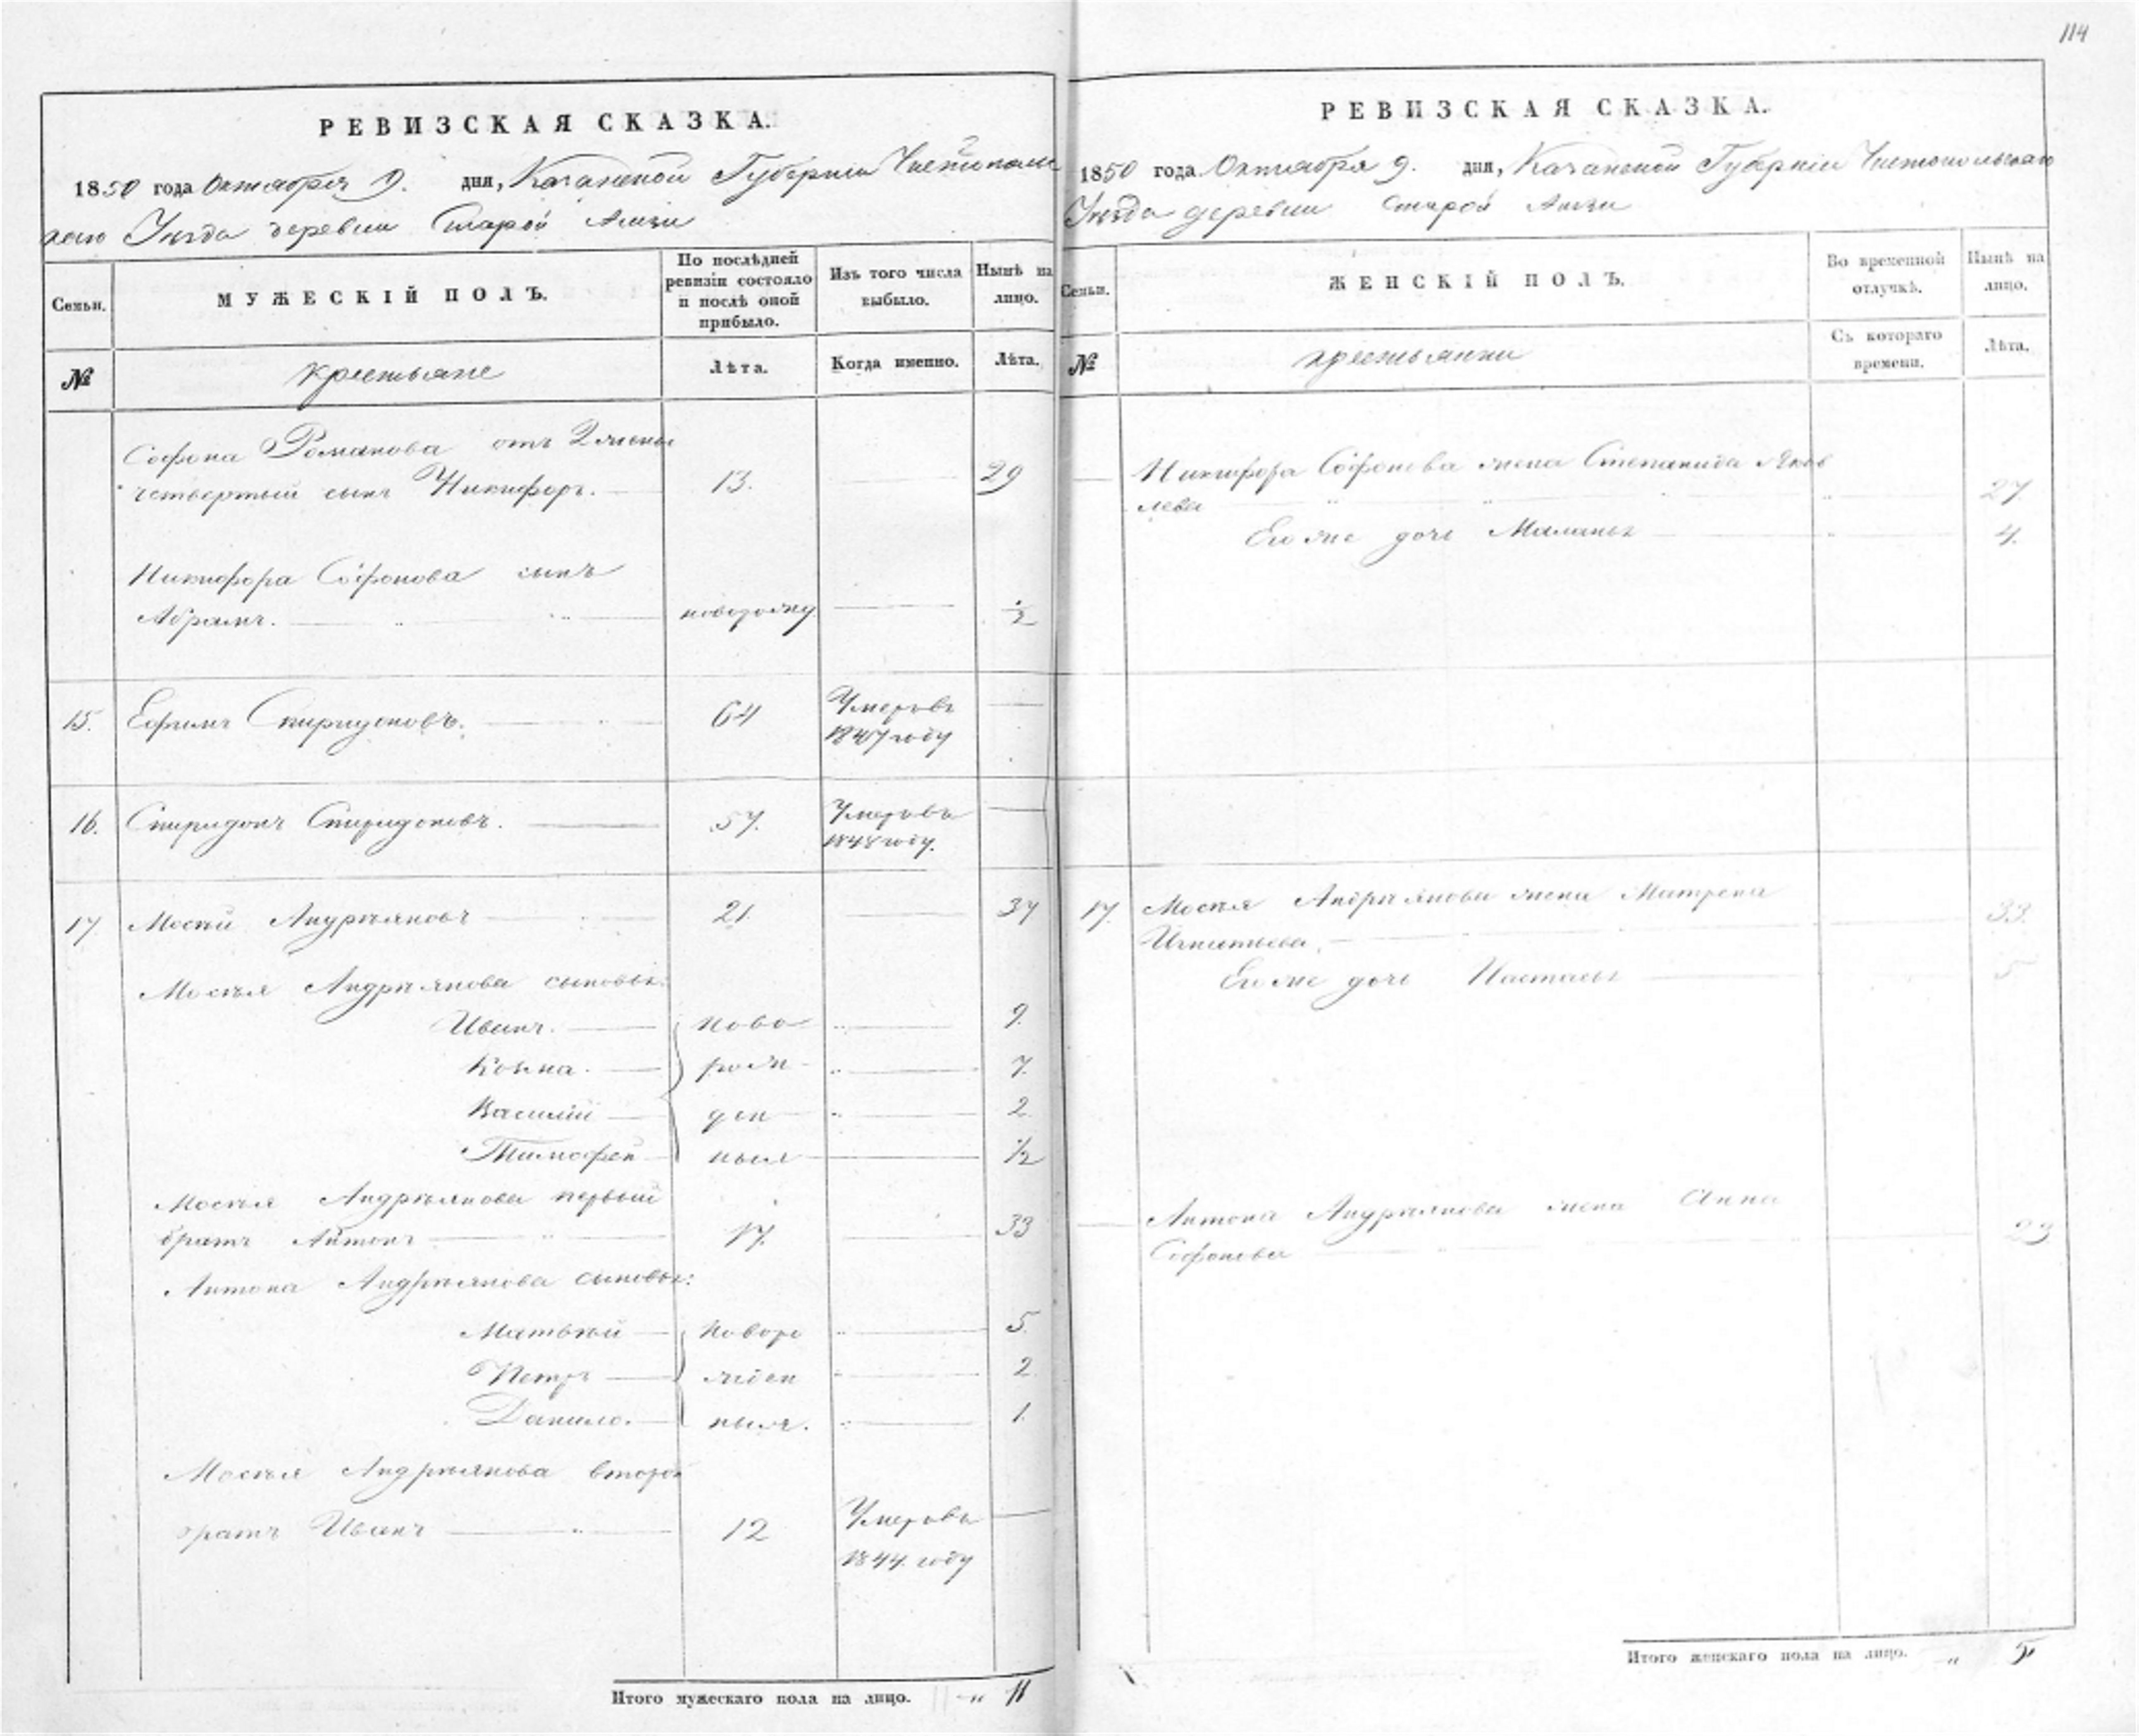 114
РЕВИЗСКАЯ СКАЗКА.
1850 года Октября 9. дня, Казанской Губерніи Чистополь
скаго Уѣзда деревни Старой Амзи
Семьи.
МУЖЕСКІЙ ПОЛЪ.
По послѣдней ревизіи состояло и послѣ оной прибыло.
Изъ того числа выбыло.
Нынѣ на лицо.
№
крестьяне
Лѣта.
Когда именно.
Лѣта.
Софона Романова отъ 2 жены
четвертый сынъ Никифоръ. 13. 29
Никифора Софонова сынъ
Абрамъ. новорожд. ½
15. Ефимъ Спиридоновъ. 64 Умеръ въ
1847 году
16. Спиридонъ Спиридоновъ. 57. Умеръ въ
1848 году.
17. Мосѣй Андрѣяновъ 21. 37
Мосѣя Андрѣянова сыновья:
Иванъ. ново 9.
Козма. рож 7.
Василій ден 2
Тимофей ныя ½
Мосѣя Андрѣянова первый
братъ Антонъ 17. 33
Антона Андрѣянова сыновья:
Матвѣй новоро 5.
Петръ жден 2.
Данило. ныя. 1.
Мосѣя Андрѣянова второй
братъ Иванъ 12 Умеръ въ
1844. году
Итого мужескаго пола на лицо. 11
РЕВИЗСКАЯ СКАЗКА.
1850 года Октября 9. дня, Казанской Губерніи Чистопольскаго
Уѣзда деревни Старой Амзи
Семьи.
ЖЕНСКІЙ ПОЛЪ.
Во временной отлучкѣ.
Нынѣ на лицо.
№
крестьянки
Съ котораго времени.
Лѣта.
Никифора Софонова жена Степанида Яков
лева 27
Его же дочь Маланья 4.
17. Мосѣя Андрѣянова жена Матрена
Игнатьева. 33.
Его же дочь Настасья 5
Антона Андрѣянова жена Анна
Софонова 23
Итого женскаго пола на лицо. 5